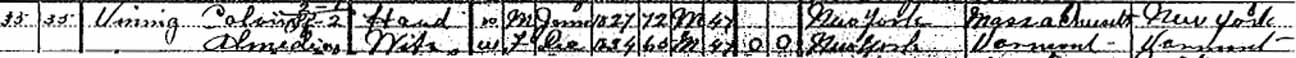 35 35 Vining Calvin Head W M June 1827 72 M 47 New York Massachusetts New York
Almedia Wife W F Dec 1834 65 M 47 0 0 New York Vermont Vermont